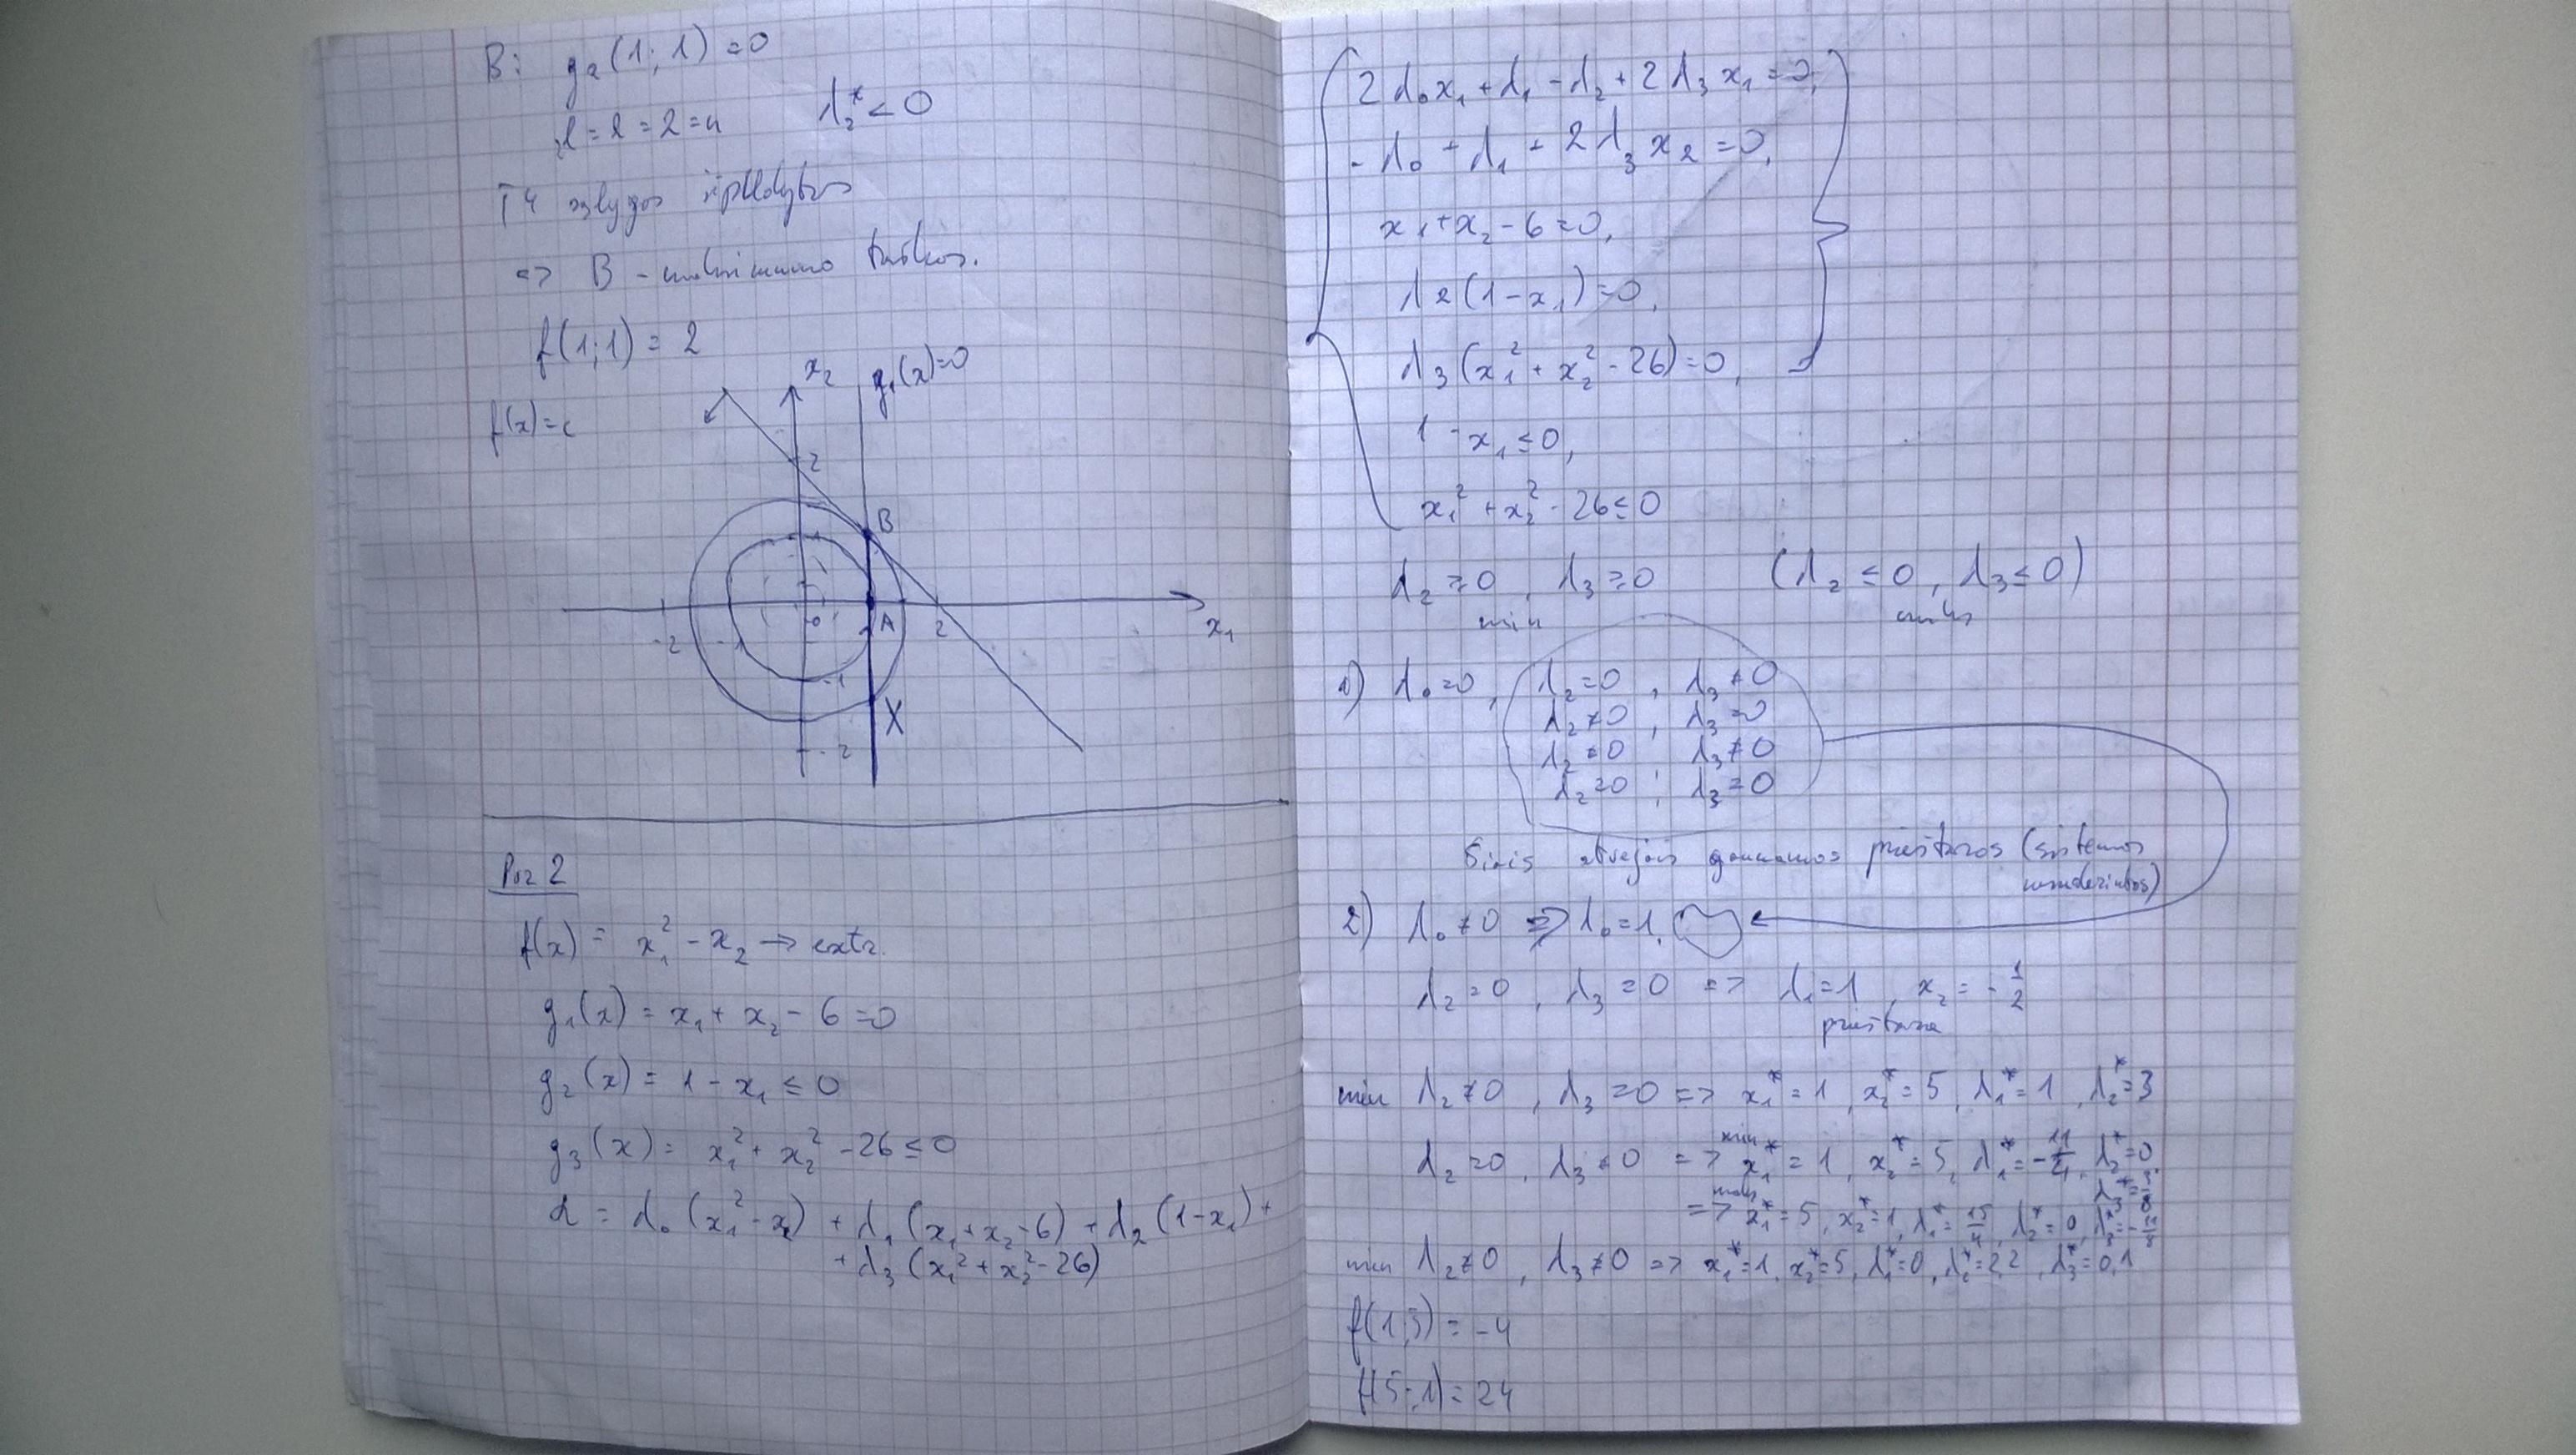 B: g₂(1; 1) = 0
λ₂* < 0
T4 sąlygos išpildytos
=> B - maksimumo taškas.
f(1;1) = 2
f(x)=c
x₂
g₁(x)=0
2
1
B
-2
-1
0
1
A
2
x₁
-1
X
-2
Pvz 2
f(x) = x₁² - x₂ → extr.
g₁(x) = x₁ + x₂ - 6 = 0
g₂(x) = 1 - x₁ ≤ 0
g₃(x) = x₁² + x₂² - 26 ≤ 0
L = λ₀ (x₁² - x₂) + λ₁ (x₁ + x₂ - 6) + λ₂ (1 - x₁) +
+ λ₃ (x₁² + x₂² - 26)
2λ₀x₁ + λ₁ - λ₂ + 2λ₃x₁ = 0,
-λ₀ + λ₁ + 2λ₃x₂ = 0,
x₁ + x₂ - 6 = 0,
λ₂(1 - x₁) = 0,
λ₃(x₁² + x₂² - 26) = 0,
1 - x₁ ≤ 0,
x₁² + x₂² - 26 ≤ 0
λ₂ ≥ 0, λ₃ ≥ 0 (λ₂ ≤ 0, λ₃ ≤ 0)
min maks
1) λ₀ = 0, λ₂ = 0, λ₃ ≠ 0
λ₂ ≠ 0, λ₃ = 0
λ₂ ≠ 0 λ₃ ≠ 0
λ₂ = 0; λ₃ = 0
Šiais atvejais gauname prieštaras (sistemos
nesuderintos)
2) λ₀ ≠ 0 => λ₀ = 1,
λ₂ = 0, λ₃ = 0 => λ₁ = 1, x₂ = -1/2
prieštara
min λ₂ ≠ 0, λ₃ = 0 => x₁* = 1, x₂* = 5, λ₁* = 1, λ₂* = 3
λ₂ = 0, λ₃ ≠ 0 => min x₁* = 1, x₂* = 5, λ₁* = -11/4, λ₂* = 0
λ₃* = 3/8
=> maks x₁* = 5, x₂* = 1, λ₁* = 15/4, λ₂* = 0, λ₃* = -11/8
min λ₂ ≠ 0, λ₃ ≠ 0 => x₁* = 1, x₂* = 5, λ₁* = 0, λ₂* = 2,2, λ₃* = 0,1
f(1;5) = -4
f(5;1) = 24